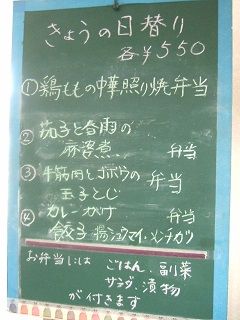 きょうの日替り
各¥550
①鶏ももの中華照り焼弁当
②茄子と春雨の
麻婆煮 弁当
③牛筋肉とゴボウの弁当
玉子とじ
④カレーかけ 弁当
餃子・揚シュウマイ・メンチカツ
お弁当には ごはん、副菜
サラダ、漬物
が付きます